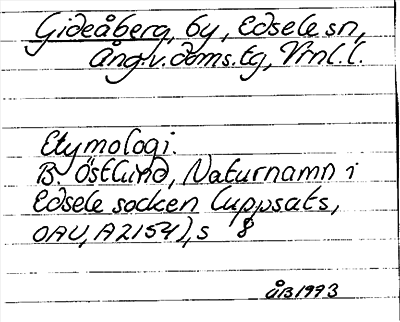 Gideåberg, by, Edsele sn,
Ång.v.doms.tg, Vrnl.l.
Etymologi.
B. Östlund, Naturnamn i
Edsele socken (uppsats,
OAU, A2154), s 8
ÅB 1973